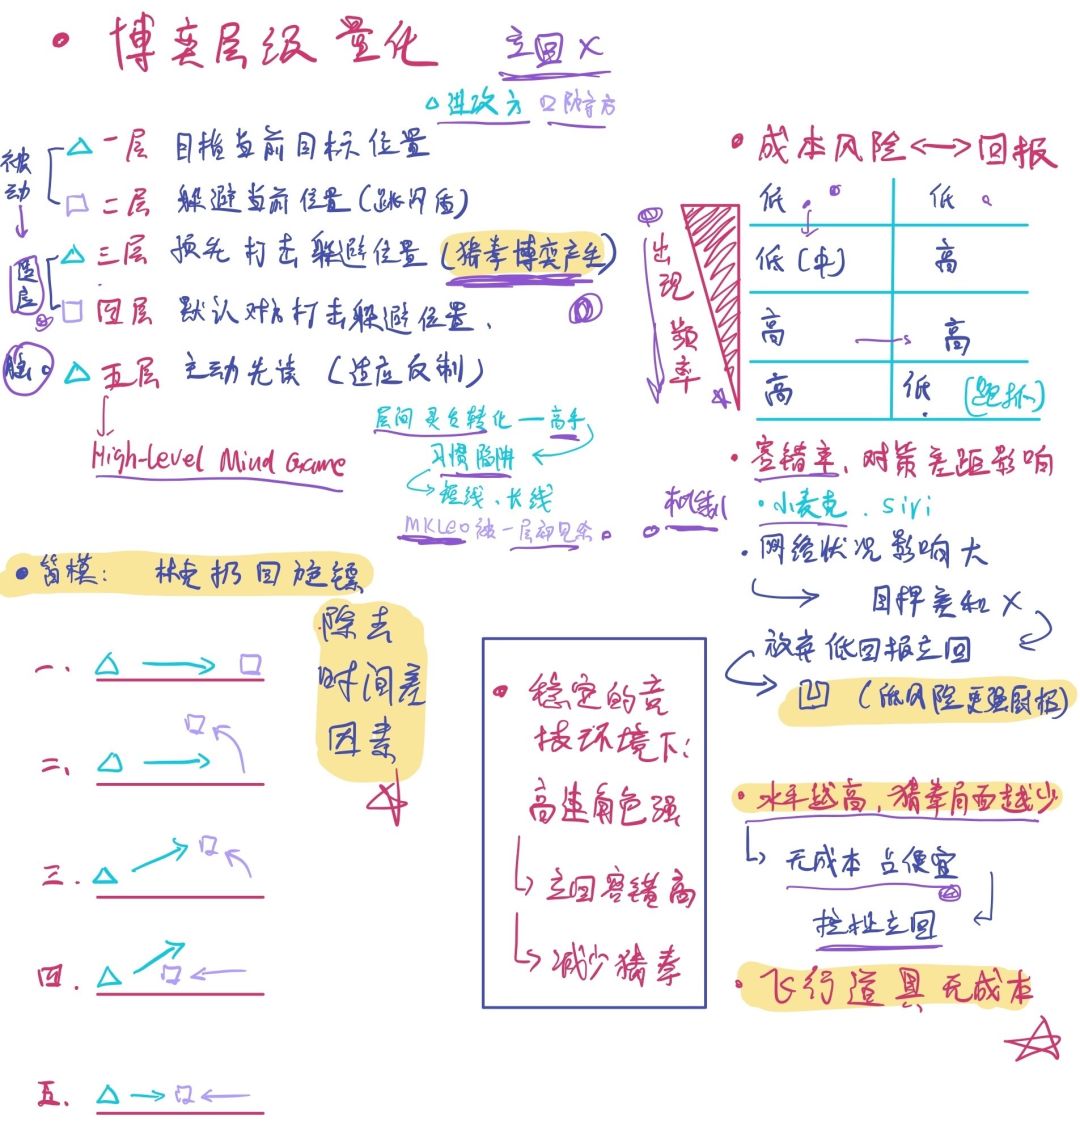 博弈层级量化
立回 X
△进攻方 □防守方
被动
△ 一层 目指当前目标位置
□ 二层 躲避当前位置(跳闪盾)
△ 三层 预先打击躲避位置(猜拳博弈产生)
□ 四层 默认对方打击躲避位置、
△ 五层 主动先读 (适应反制)
High-level Mind Game
层间灵台转化 — 高手
习惯陷阱
短线、长线
MKLeo被一层初见杀。
机制
成本风险 <—> 回报
低 低
低(中) 高
高 高
高 低 (跑抓)
出现频率
容错率、对策差距影响
小麦克、siri
网络状况影响大
目押差和 X
放弃低回报立回
凹 (低风险更强回报)
简模: 林克扔回旋镖
除去
时间差
因素
一、△ □
二、△ □
三、△ □
四、△ □
五、△ □
稳定的竞
技环境下:
高速角色强
立回容错高
减少猜拳
水平越高,猜拳局面越少
无成本占便宜
控杜立回
飞行道具无成本